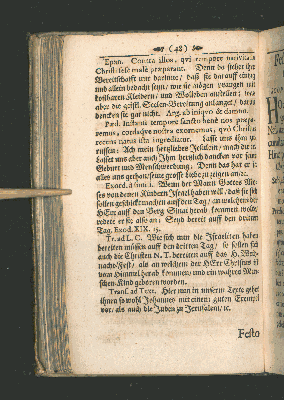 (48)
Epan. Contra illos, qvi tempore nativitatis
Christi sese malè præparant. Denn da stehet ihr
Bereitschafft nur darinne/ daß sie darauff einzig
und allein bedacht seyn/ wie sie mögen prangen mit
kostbaren Kleidern/ und Wolleben anstellen: was
aber die geistl. Seelen-Bereitung anlanget/ daran
dencken sie gar nicht. Arg. ab inhon. & damnos.
Pæd. Instante tempore sancto bene nos præpa-
remus, cordaqve nostra exornemus, qvò Christus
recens natus ista ingrediatur. Lasst uns ihm zu-
ruffen: Ach mein hertzliebes Jesulein/ mach dir ic.
Lasset uns aber auch Ihm hertzlich dancken vor seine
Geburt und Menschwerdung. Denn das hat er ja
alles uns gethan/ seine grosse Liebe zu zeigen an/ ic.
Exord. à simili. Wenn der Mann Gottes Mo-
ses von denen Kindern Israel haben will/ daß sie sich
sollen geschickt machen auff den Tag/ an welchem der
HErr auff den Berg Sinai herab kommen wolte/
redete er sie also an: Seyd bereit auff den dritten
Tag. Exod. XIX. 15.
Tr. ad L. C. Wie sich nun die Israeliten haben
bereiten müssen auff den dritten Tag/ so sollen sich
auch die Christen N. T. bereiten auff das H. Weyh-
nacht-Fest/ als an welchem der HErr Christus
vom Himmel herab kommen/ und ein wahres Men-
schen-Kind geboren worden.
Transl. ad Text. Hier nun in unserm Texte gehet
ihnen sowohl Johannes mit einem guten Exempel
vor/ als auch die Juden zu Jerusalem/ ic.
Festo